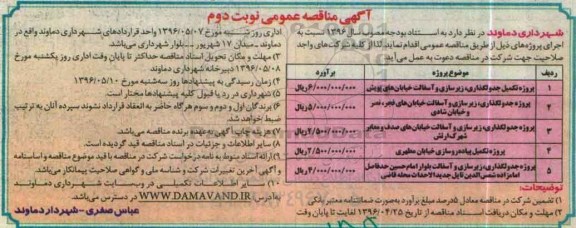 آگهی مناقصه عمومی نوبت دوم
شهرداری دماوند در نظر دارد به استناد بودجه مصوب سال ۱۳۹۶ نسبت به
اجرای پروژه‌های ذیل از طریق مناقصه عمومی اقدام نماید. لذا از کلیه شرکت‌های واجد
صلاحیت جهت شرکت در مناقصه دعوت به عمل می‌آید.
ردیف موضوع پروژه برآورد
۱ پروژه تکمیل جدولگذاری، زیرسازی و آسفالت خیابان‌های پویش ۶/۰۰۰/۰۰۰/۰۰۰ریال
۲ پروژه جدولگذاری، زیرسازی و آسفالت خیابان‌های فجر، نصر و خیابان شادی ۵/۰۰۰/۰۰۰/۰۰۰ریال
۳ پروژه جدولگذاری، زیرسازی و آسفالت خیابان‌های صدف و معابر شهرک ارتش ۴/۵۰۰/۰۰۰/۰۰۰ریال
۴ پروژه تکمیل پیاده‌رو سازی خیابان مطهری ۲/۵۰۰/۰۰۰/۰۰۰ریال
۵ پروژه جدولگذاری، زیرسازی و آسفالت بلوار امام حسین حدفاصل امامزاده شمس‌الدین تا پل جدیدالاحداث محله قاضی ۴/۰۰۰/۰۰۰/۰۰۰ریال
توضیحات:
۱) تضمین شرکت در مناقصه معادل ۵درصد مبلغ برآورد به‌صورت ضمانتنامه معتبر بانکی
۲) مهلت و مکان دریافت اسناد مناقصه از تاریخ ۱۳۹۶/۰۴/۲۵ لغایت تا پایان وقت
اداری روز شنبه مورخ ۱۳۹۶/۰۵/۰۷ واحد قراردادهای شهرداری دماوند واقع در
دماوند ـ میدان ۱۷ شهریور ـ بلوار شهرداری می‌باشد.
۳) مهلت و مکان تحویل اسناد مناقصه حداکثر تا پایان وقت اداری روز یکشنبه مورخ
۱۳۹۶/۰۵/۰۸ دبیرخانه شهرداری دماوند
۴) زمان رسیدگی به پیشنهادها روز سه‌شنبه مورخ ۱۳۹۶/۰۵/۱۰
۵) شهرداری در رد یا قبول کلیه پیشنهادها مختار است.
۶) برندگان اول و دوم و سوم هرگاه حاضر به انعقاد قرارداد نشوند سپرده آنان به ترتیب
ضبط خواهد شد.
۷) هزینه چاپ آگهی به عهده برنده مناقصه می‌باشد.
۸) سایر اطلاعات و جزئیات در اسناد مناقصه قید گردیده است.
۹) ارائه اسناد منوط به نامه درخواست شرکت در مناقصه با قید موضوع مناقصه و اساسنامه
و آگهی آخرین تغییرات شرکت و شناسه ملی و گواهی صلاحیت پیمانکار می‌باشد.
۱۰) سایر اطلاعات تکمیلی در وب‌سایت شهرداری دماوند
به‌آدرس WWW.DAMAVAND.IR در دسترس می‌باشد.
عباس صفری - شهردار دماوند